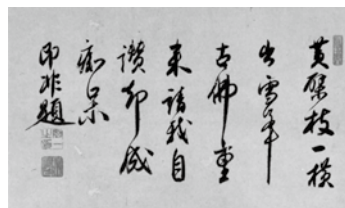 黄檗枝一橫
出雪峯
古佛重
來請我自
讃却成
痴呆
即非題